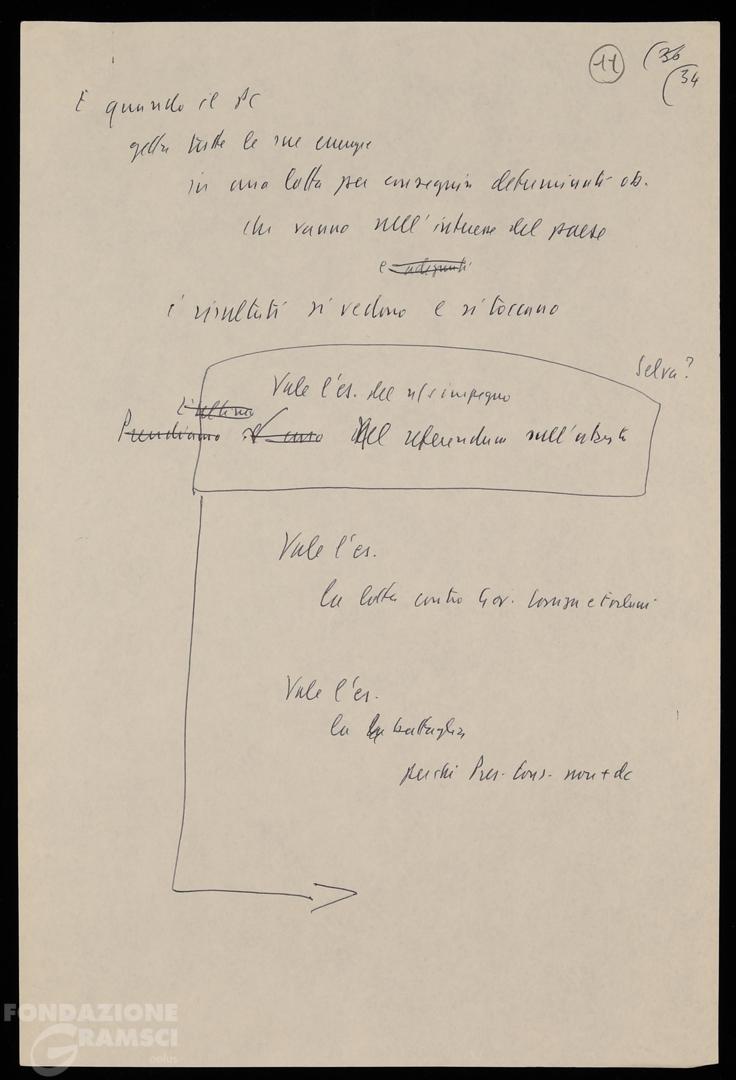 11
(36
(34
E quando il PC
getta tutte le sue energie
in una lotta per conseguire determinati ob.
che vanno nell'interesse del paese
e adeguati
i risultati si vedono e si toccano
Selva?
Vale l'es. del ns impegno
L'ultimo
Prendiamo il caso del referendum sull'aborto
Vale l'es.
la lotta contro Gov. Cossiga e Forlani
Vale l'es.
la battaglia
perché Pres. Cons. non + dc
FONDAZIONE
GRAMSCI
onlus